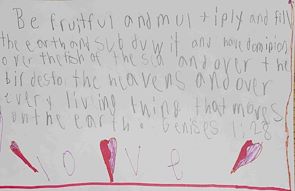 Be fruitful and multiply and fill
the earth and subduw it and have dominion
over the fish of the sea and over the
birdesto. the heavens and over
every living thing that moves
on the earth. Genises 1:28
love